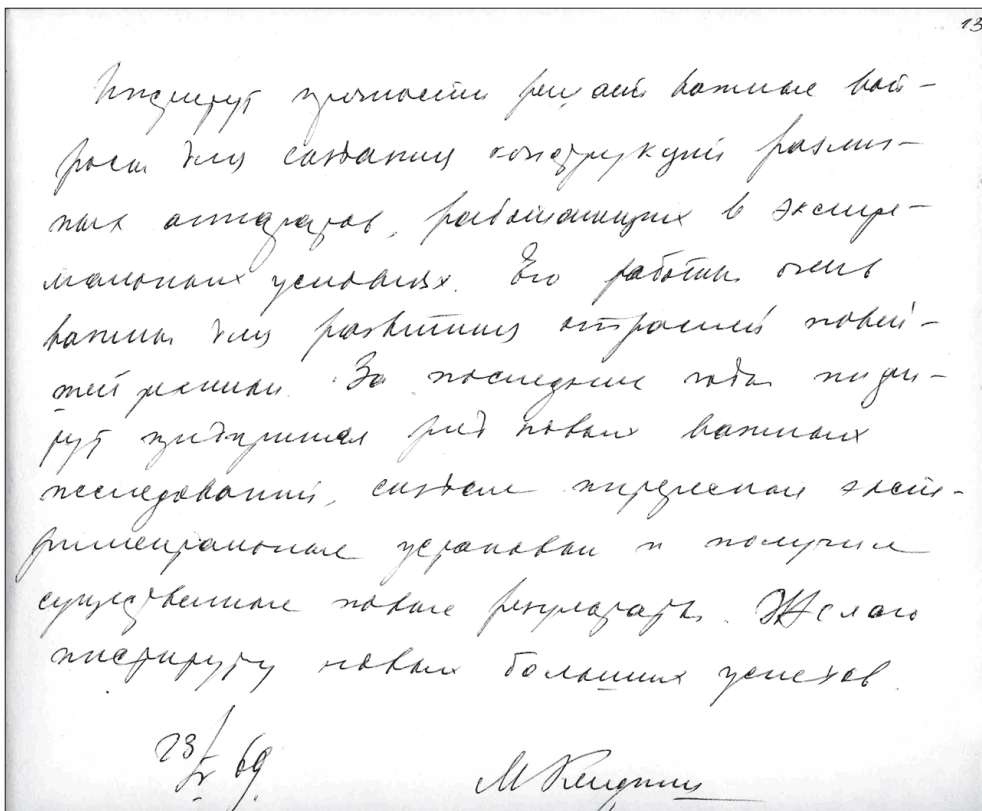 13
Институт прочности решает важные воп-
росы для создания конструкций различ-
ных аппаратов, работающих в экстре-
мальных условиях. Его работы очень
важны для развития отраслей новей-
шей техники. За последние годы инсти-
тут предпринял ряд новых важных
исследований, создал интересные экспе-
риментальные установки и получил
существенные новые результаты. Желаю
институту новых больших успехов.
23/V 69
М Келдыш